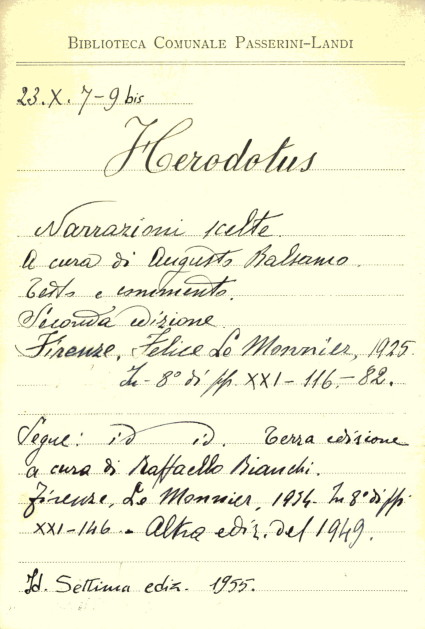 BIBLIOTECA COMUNALE PASSERINI-LANDI
23. X. 7-9 bis
Herodotus
Narrazioni scelte.
A cura di Augusto Balsamo.
Testo e commento.
Seconda edizione
Firenze, Felice Le Monnier, 1925.
In-8° di pp. XXI-116.-82.
Segue: id id. Terza edizione
a cura di Raffaello Bianchi.
Firenze, Le Monnier, 1934. In 8° di pp.
XXI-146 - Altra ediz. del 1949.
Id. Settima ediz. 1955.